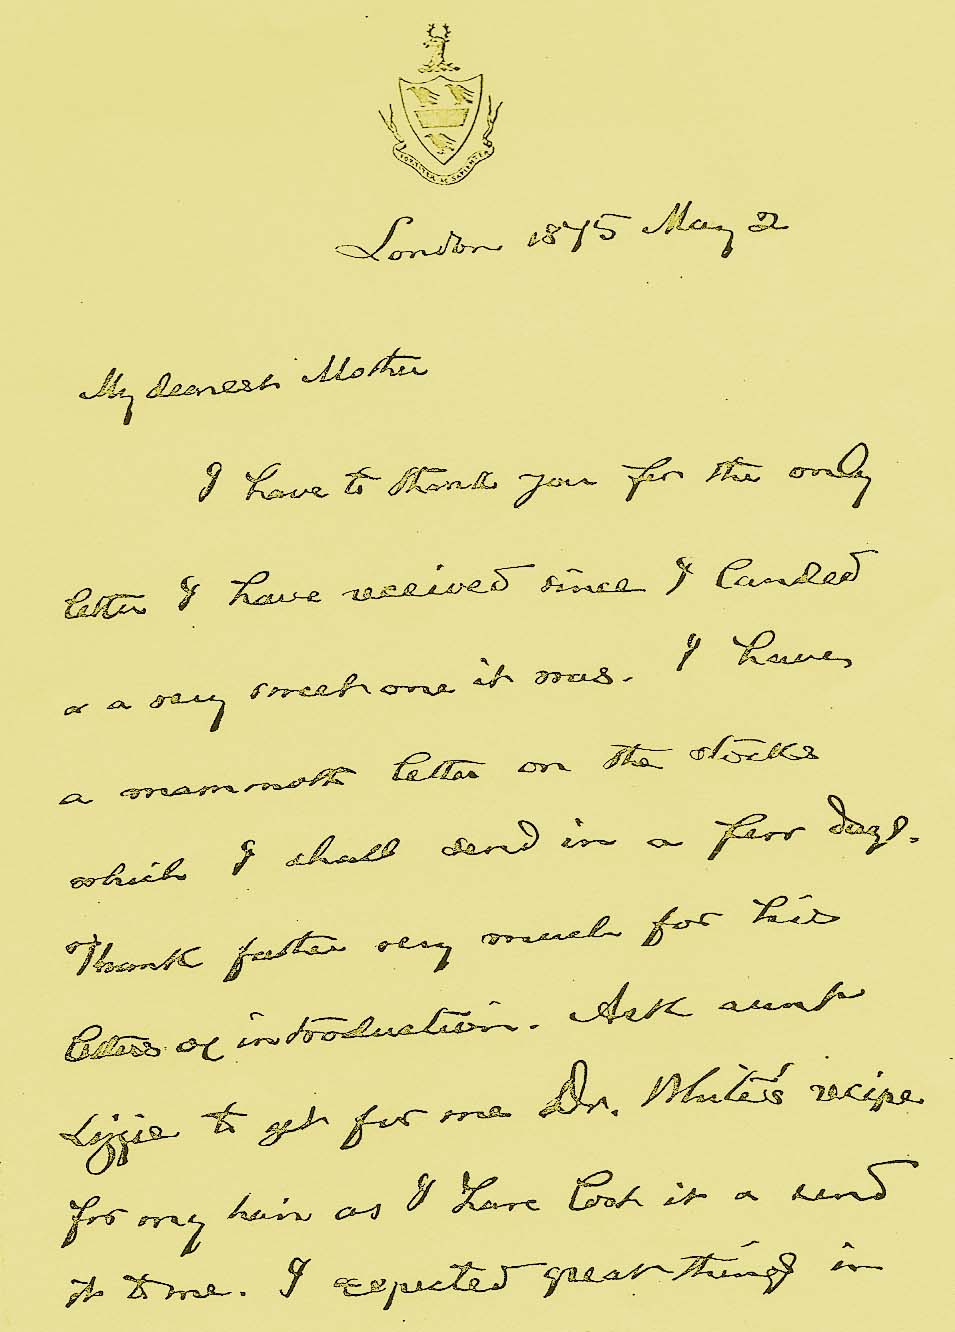 FORTITER AC SAPIENTER
London 1875 May 2
My dearest Mother
I have to thank you for the only
letter I have received since I landed
& a very sweet one it was. I have
a mammoth letter on the stocks
which I shall send in a few days.
Thank father very much for his
letters of introduction. Ask aunt
Lizzie to get for me Dr. White's recipe
for my hair as I have lost it & send
it to me. I expected great things in